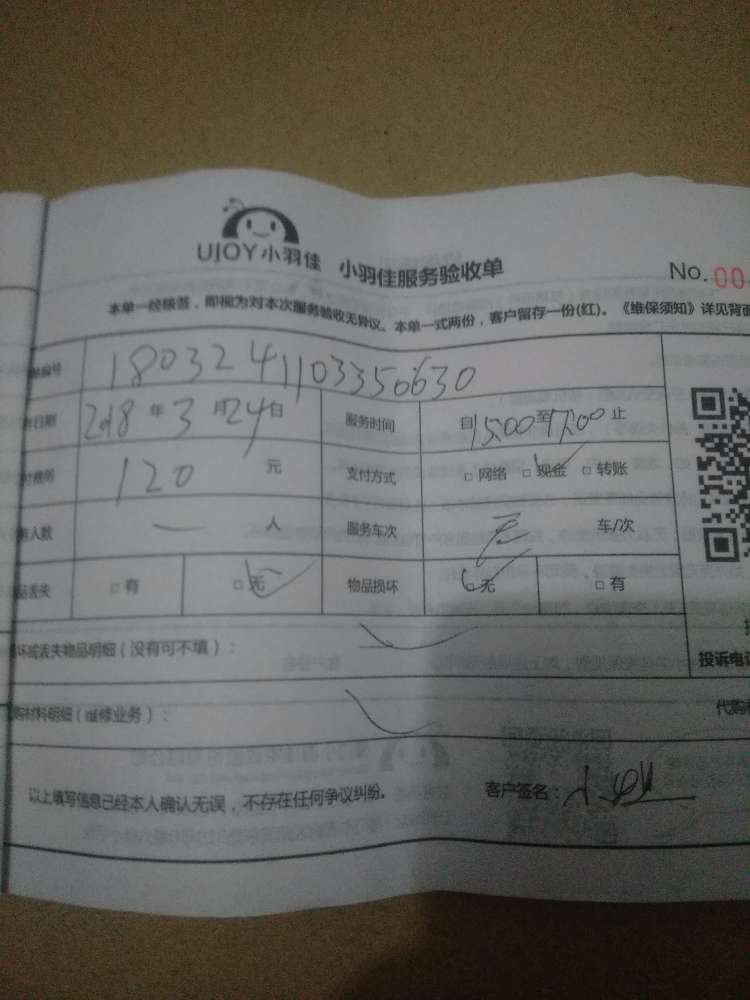 UJOY小羽佳 小羽佳服务验收单 No.00
本单一经核签，即视为对本次服务验收无异议。本单一式两份，客户留存一份(红)。《维保须知》详见背面
编号 1803241103350630
日期 2018年3月24日 服务时间 自15:00至17:00止
费用 120 元 支付方式 □网络 □现金 □转账
人数 一 人 服务车次 无 车/次
品丢失 □有 □无 物品损坏 □无 □有
坏或丢失物品明细（没有可不填）：
投诉电话
购材料明细（维修业务）：
代购
以上填写信息已经本人确认无误，不存在任何争议纠纷。 客户签名：